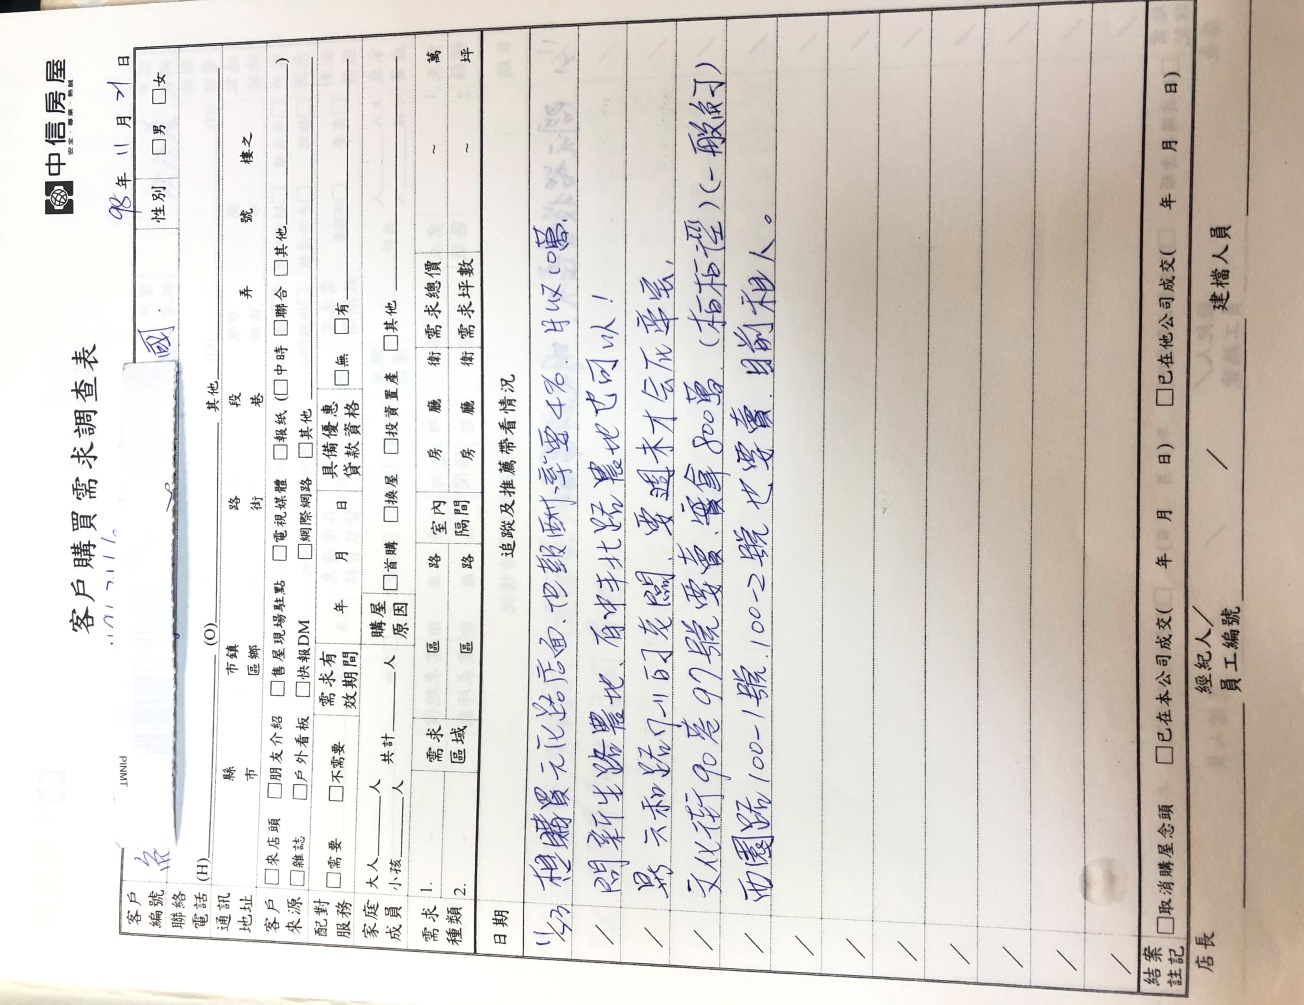 中信房屋
安全‧專業‧熱誠
客戶購買需求調查表
98年11月21日
PINMT
客戶編號 國 性別 □男 □女
聯絡電話 (H) (O) 其他
通訊地址 縣市 市鎮區鄉 路街 段巷 弄 號 樓之
客戶來源 □來店頭 □朋友介紹 □售屋現場駐點 □電視媒體 □報紙(□中時 □聯合 □其他 )
□雜誌 □戶外看板 □快報DM □網際網路 □其他
配對服務 □需要 □不需要 需求有效期間 年 月 日 具備優惠貸款資格 □無 □有
家庭成員 大人 人 小孩 人 共計 人 購屋原因 □首購 □換屋 □投資置產 □其他
需求種類 1. 需求區域 區 路 室內隔間 房 廳 衛 需求總價 ~ 萬
2. 區 路 房 廳 衛 需求坪數 ~ 坪
日期 追蹤及推薦帶看情況
11/23 想購買元化路店面、但報酬率要4%、月收10萬、
/ 問新生路農地、有中半北路農地也可以!
/ 要週末才會在
/ 文化街90巷97號要賣、實拿800萬 (一般約)
/ 西園路100-1號、100-2號也要賣、目前租人。
/
/
/
/
/
/
/
結案註記 □取消購屋念頭 □已在本公司成交( 年 月 日) □已在他公司成交( 年 月 日)
店長 經紀人/員工編號 / 建檔人員